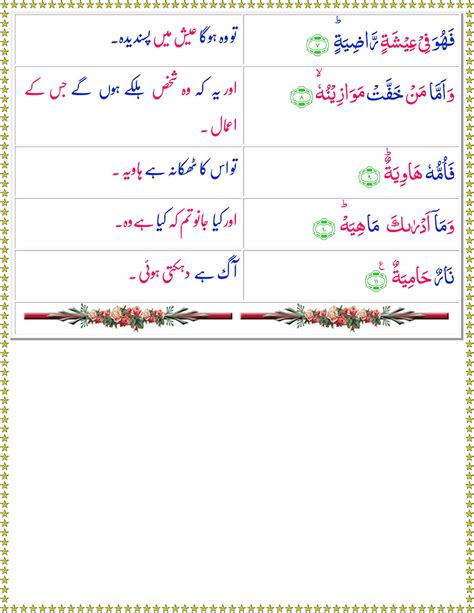 فَهُوَ فِیۡ عِیۡشَۃٍ رَّاضِیَۃٍ ؕ ﴿۷﴾
تو وہ ہوگا عیش میں پسندیدہ۔
وَاَمَّا مَنۡ خَفَّتۡ مَوَازِیۡنُہٗ ۙ ﴿۸﴾
اور یہ کہ وہ شخص ہلکے ہوں گے جس کے
اعمال ۔
فَاُمُّہٗ ہَاوِیَۃٌ ؕ ﴿۹﴾
تو اس کا ٹھکانہ ہے ہاویہ ۔
وَمَاۤ اَدۡرٰىكَ مَاہِیَہۡ ؕ
اور کیا جانو تم کہ کیا ہے وہ۔
نَارٌ حَامِیَۃٌ ﴿۱۱﴾
آگ ہے دہکتی ہوئی ۔